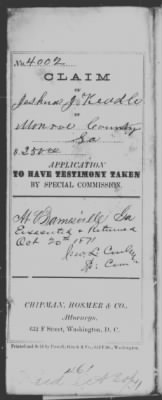 No. 4002
CLAIM
OF
Joshua J. Keadle
OF
Monroe County
Ga
$ 250.00
APPLICATION
TO HAVE TESTIMONY TAKEN
BY SPECIAL COMMISSION.
At Barnesville Ga
Executed & Returned
Oct 20th 1871
CHIPMAN, HOSMER & CO.,
Attorneys,
632 F Street, Washington, D. C.